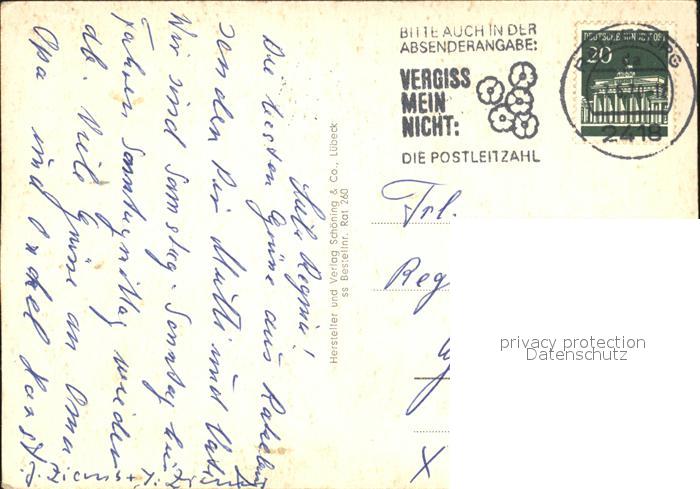 BITTE AUCH IN DER
ABSENDERANGABE:
VERGISS
MEIN
NICHT:
DIE POSTLEITZAHL
DEUTSCHE BUNDESPOST
20
2418
Liebe Regina!
Die besten Grüße aus
senden Dir Mutti und Vati
Wir sind Samstag-Sonntag hier
Fahren Sonntagmittag wieder
ab. Viele Grüße an Oma
Opa und Onkel Hans
Hersteller und Verlag Schöning & Co., Lübeck
ss Bestellnr. Rat 260
Frl.
Reg
X
privacy protection
Datenschutz